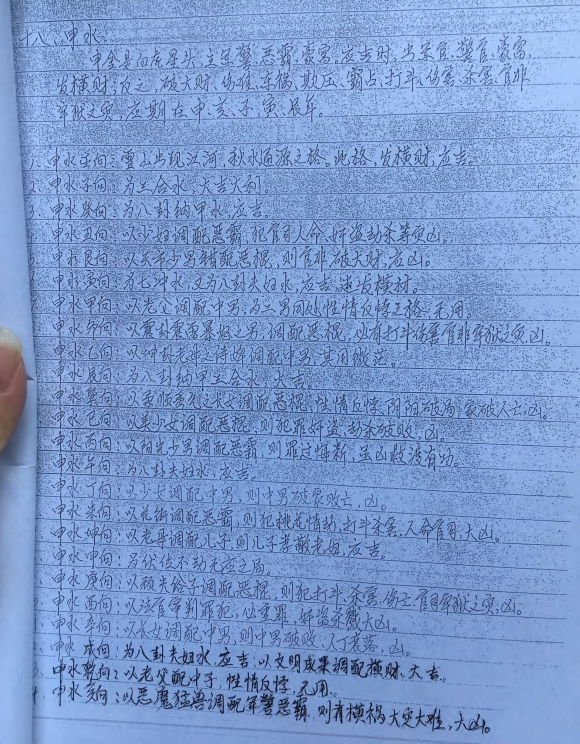 十八、申水
申金是白虎星头，主军警、恶霸、豪富。应吉时，出军官、警官、豪富、
发横财，反之，破大财、伤残、车祸、欺压、霸占、打斗、伤害、杀害、官非、
牢狱之灾，应期在申、亥、子、寅、辰年。
1、申水壬向：雪山出现江河，秋水通源之格。此格，发横财，应吉。
2、申水子向：为三合水，大吉大利。
3、申水癸向：为八卦纳甲水，应吉。
申水丑向：以少妇调配恶霸，犯官司人命，奸盗劫杀等灾凶。
申水艮向：以少男调配恶棍，则官非破大财，应凶。
申水寅向：为七冲水，又为八卦夫妇水，应吉，速发横财。
申水甲向：以老父调配中男，为二男同处性情反悖之格，无用。
申水卯向：以震卦震雷暴怒之男，调配恶棍，必有打斗伤害官非牢狱之灾，凶。
申水乙向：以坤卦老母之待婢调配中男，其用微茫。
申水辰向：为八卦纳甲三合水，大吉。
申水巽向：以柔顺之长女调配恶棍，性情反悖，阴阳破局，家破人亡，凶。
申水巳向：以美少女调配恶棍，则犯罪奸盗，劫杀破败，凶。
申水丙向：以阳光少男调配恶霸，则罪过悔新，虽凶救没有功。
申水午向：为八卦夫妇水，应吉。
申水丁向：以少女调配中男，则中男破家败亡，凶。
申水未向：以花街调配恶霸，则犯桃花情劫，打斗杀害，人命官司，大凶。
申水坤向：以老母调配儿子，则儿子孝敬老母，应吉。
申水申向：为伏位不动无应之局。
申水庚向：以颓夫俗子调配恶棍，则犯打斗、杀害、伤亡、官司牢狱之灾，凶。
申水酉向：以法官审判罪犯，位重罪，奸盗杀戮大凶。
申水辛向：以长女调配中男，则中男破败，人丁衰落，凶。
申水戌向：为八卦夫妇水，应吉，以文明成果调配横财，大吉。
申水乾向：以老父配中子，性情反悖，无用。
申水亥向：以恶魔猛兽调配军警恶霸，则有横祸大灾大难，大凶。